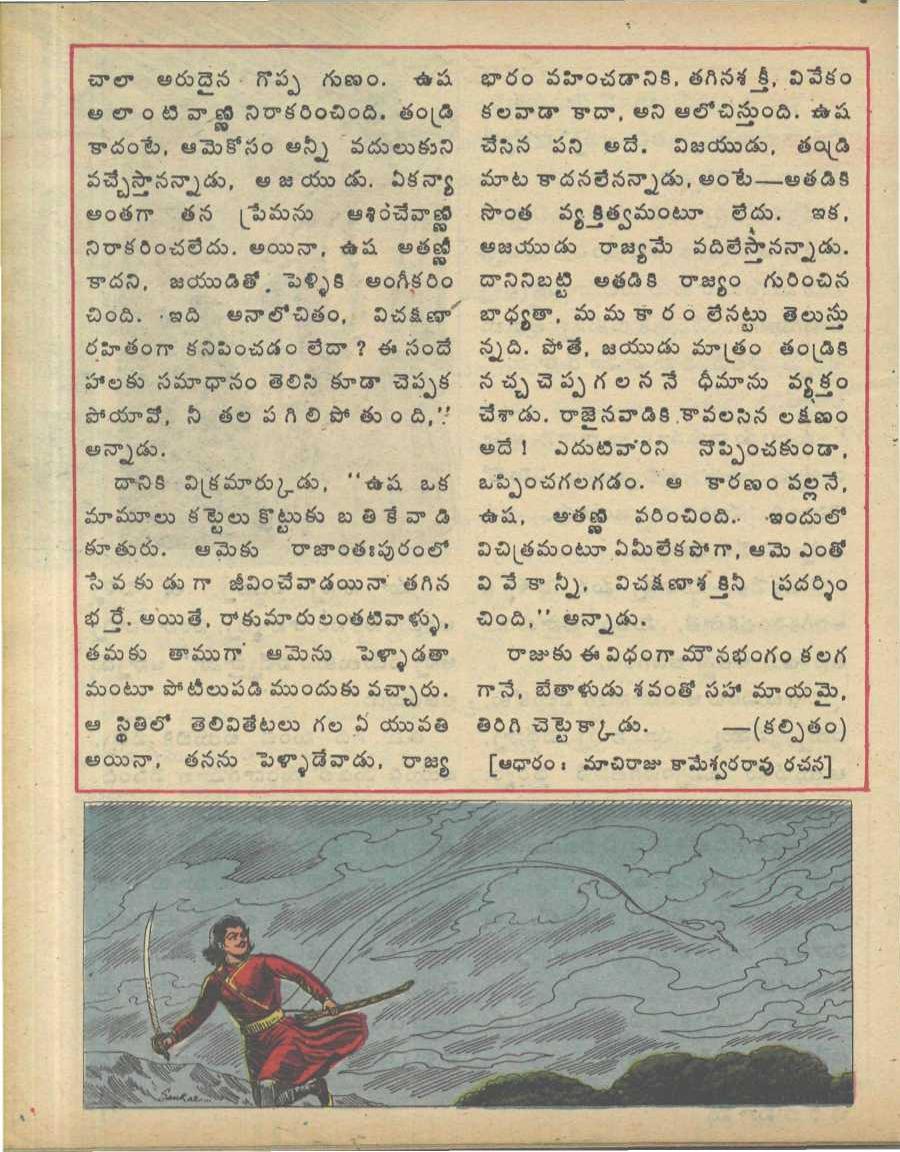 చాలా అరుదైన గొప్ప గుణం. ఉష
అలాంటివాణ్ణి నిరాకరించింది. తండ్రి
కాదంటే, ఆమెకోసం అన్నీ వదులుకుని
వచ్చేస్తానన్నాడు, అజయుడు. ఏకన్యా
అంతగా తన ప్రేమను ఆశించేవాణ్ణి
నిరాకరించలేదు. అయినా, ఉష అతణ్ణి
కాదని, జయుడితో పెళ్ళికి అంగీకరిం
చింది. ఇది అనాలోచితం, విచక్షణా
రహితంగా కనిపించడం లేదా ? ఈ సందే
హాలకు సమాధానం తెలిసి కూడా చెప్పక
పోయావో, నీ తల పగిలిపోతుంది,''
అన్నాడు.
దానికి విక్రమార్కుడు, ‘‘ఉష ఒక
మామూలు కట్టెలు కొట్టుకు బతికేవాడి
కూతురు. ఆమెకు రాజాంతఃపురంలో
సేవకుడుగా జీవించేవాడయినా తగిన
భర్తే. అయితే, రాకుమారులంతటివాళ్ళు,
తమకు తాముగా ఆమెను పెళ్ళాడతా
మంటూ పోటీలుపడి ముందుకు వచ్చారు.
ఆ స్థితిలో తెలివితేటలు గల ఏ యువతి
అయినా, తనను పెళ్ళాడేవాడు, రాజ్య
భారం వహించడానికి, తగినశక్తీ, వివేకం
కలవాడా కాదా, అని ఆలోచిస్తుంది. ఉష
చేసిన పని అదే. విజయుడు, తండ్రి
మాట కాదనలేనన్నాడు, అంటే—అతడికి
సొంత వ్యక్తిత్వమంటూ లేదు. ఇక,
అజయుడు రాజ్యమే వదిలేస్తానన్నాడు.
దానినిబట్టి అతడికి రాజ్యం గురించిన
బాధ్యతా, మమకారం లేనట్టు తెలుస్తు
న్నది. పోతే, జయుడు మాత్రం తండ్రికి
నచ్చచెప్పగలననే ధీమాను వ్యక్తం
చేశాడు. రాజైనవాడికి కావలసిన లక్షణం
అదే ! ఎదుటివారిని నొప్పించకుండా,
ఒప్పించగలగడం. ఆ కారణం వల్లనే,
ఉష, అతణ్ణి వరించింది. ఇందులో
విచిత్రమంటూ ఏమీలేకపోగా, ఆమె ఎంతో
వివేకాన్నీ, విచక్షణాశక్తినీ ప్రదర్శిం
చింది,'' అన్నాడు.
రాజుకు ఈ విధంగా మౌనభంగం కలగ
గానే, బేతాళుడు శవంతో సహా మాయమై,
తిరిగి చెట్టెక్కాడు. —(కల్పితం)
[ఆధారం : మాచిరాజు కామేశ్వరరావు రచన]
Sankar...